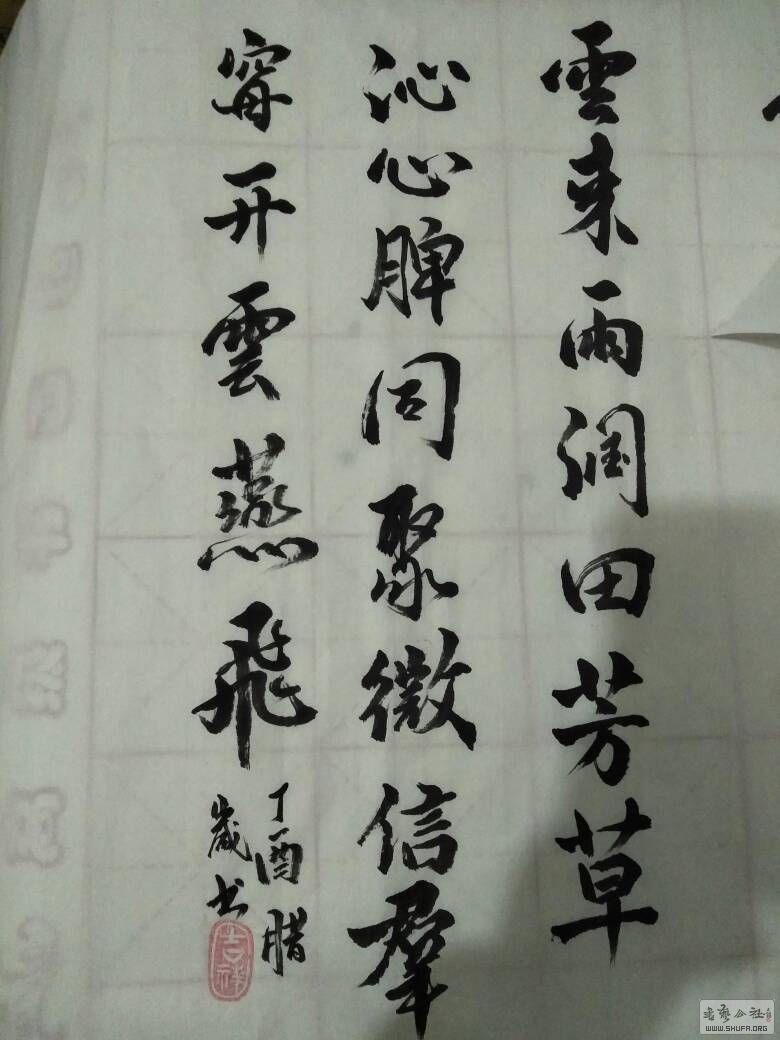 雲来雨润田芳草
沁心脾同聚微信羣
開雲燕飛
丁酉腊
歲书
吉祥
WWW.SHUFA.ORG